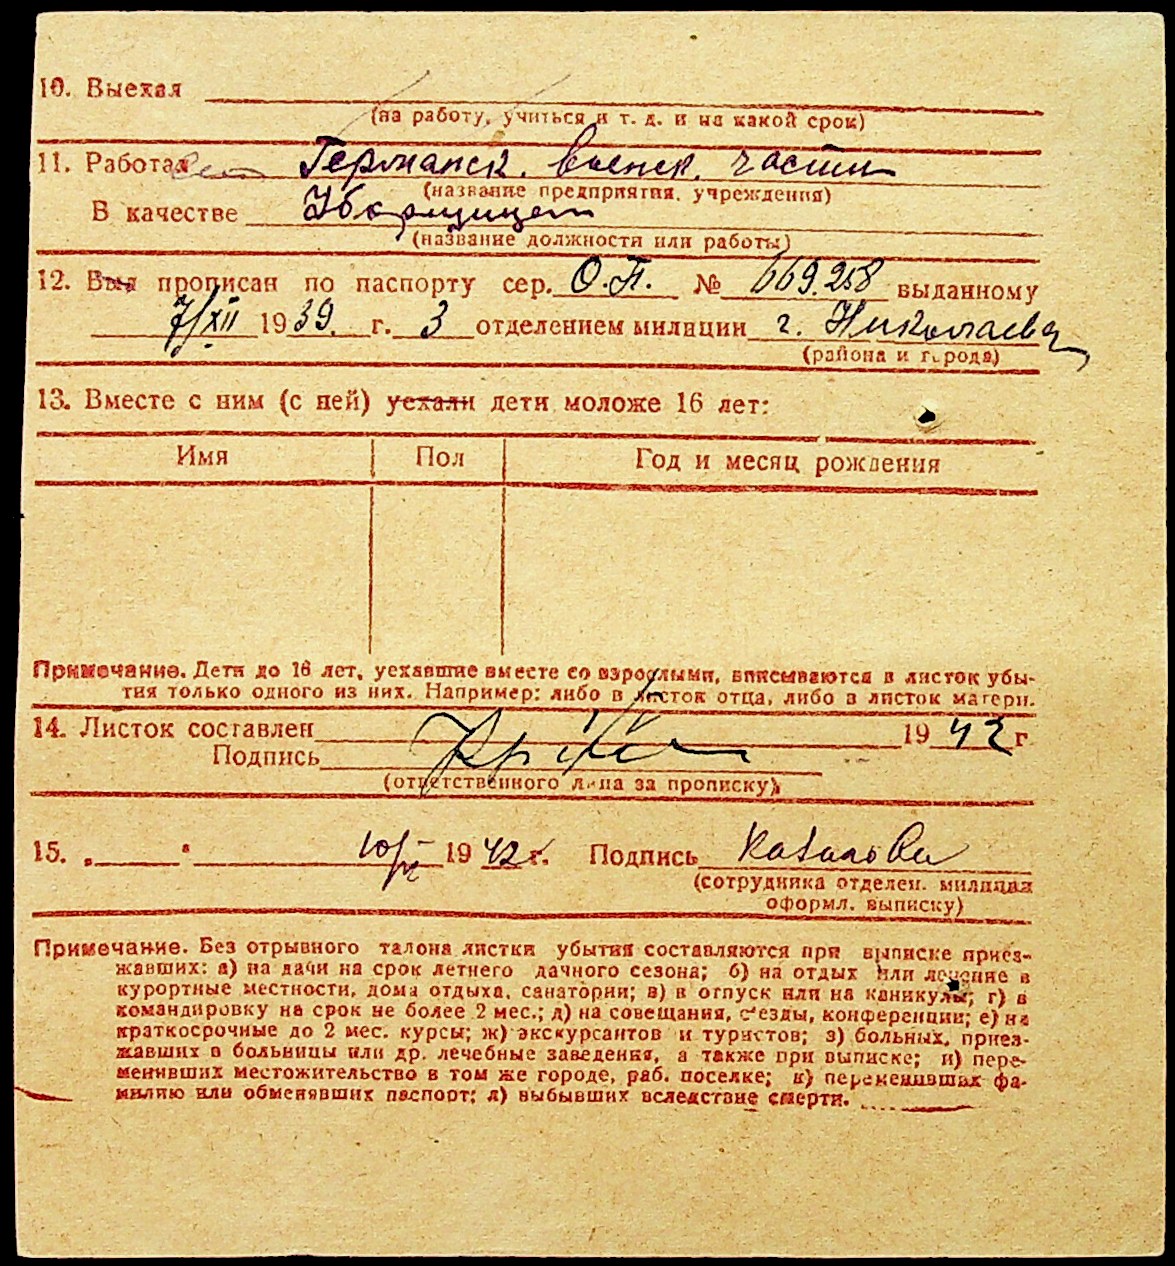 10. Выехал
(на работу, учиться и т. д. и на какой срок)
11. Работает Германск. военск. части
(название предприятия, учреждения)
В качестве Уборщицей
(название должности или работы)
12. Был прописан по паспорту сер. О.П. № 669.258 выданному
7/XII 1939. г. 3 отделением милиции г. Николаева
(района и города)
13. Вместе с ним (с ней) уехали дети моложе 16 лет:
Имя Пол Год и месяц рождения
Примечание. Дети до 16 лет, уехавшие вместе со взрослыми, вписываются в листок убы-
тия только одного из них. Например: либо в листок отца, либо в листок матери.
14. Листок составлен 1942 г
Подпись
(ответственного лица за прописку)
15. „ " 10/VI 1942 г. Подпись
(сотрудника отделен. милиции
оформл. выписку)
Примечание. Без отрывного талона листки убытия составляются при выписке приез-
жавших: а) на дачи на срок летнего дачного сезона; б) на отдых или лечение в
курортные местности, дома отдыха, санатории; в) в отпуск или на каникулы; г) в
командировку на срок не более 2 мес.; д) на совещания, съезды, конференции; е) на
краткосрочные до 2 мес. курсы; ж) экскурсантов и туристов; з) больных, приез-
жавших в больницы или др. лечебные заведения, а также при выписке; и) пере-
менивших местожительство в том же городе, раб. поселке; к) переменивших фа-
милию или обменявших паспорт; л) выбывших вследствие смерти.